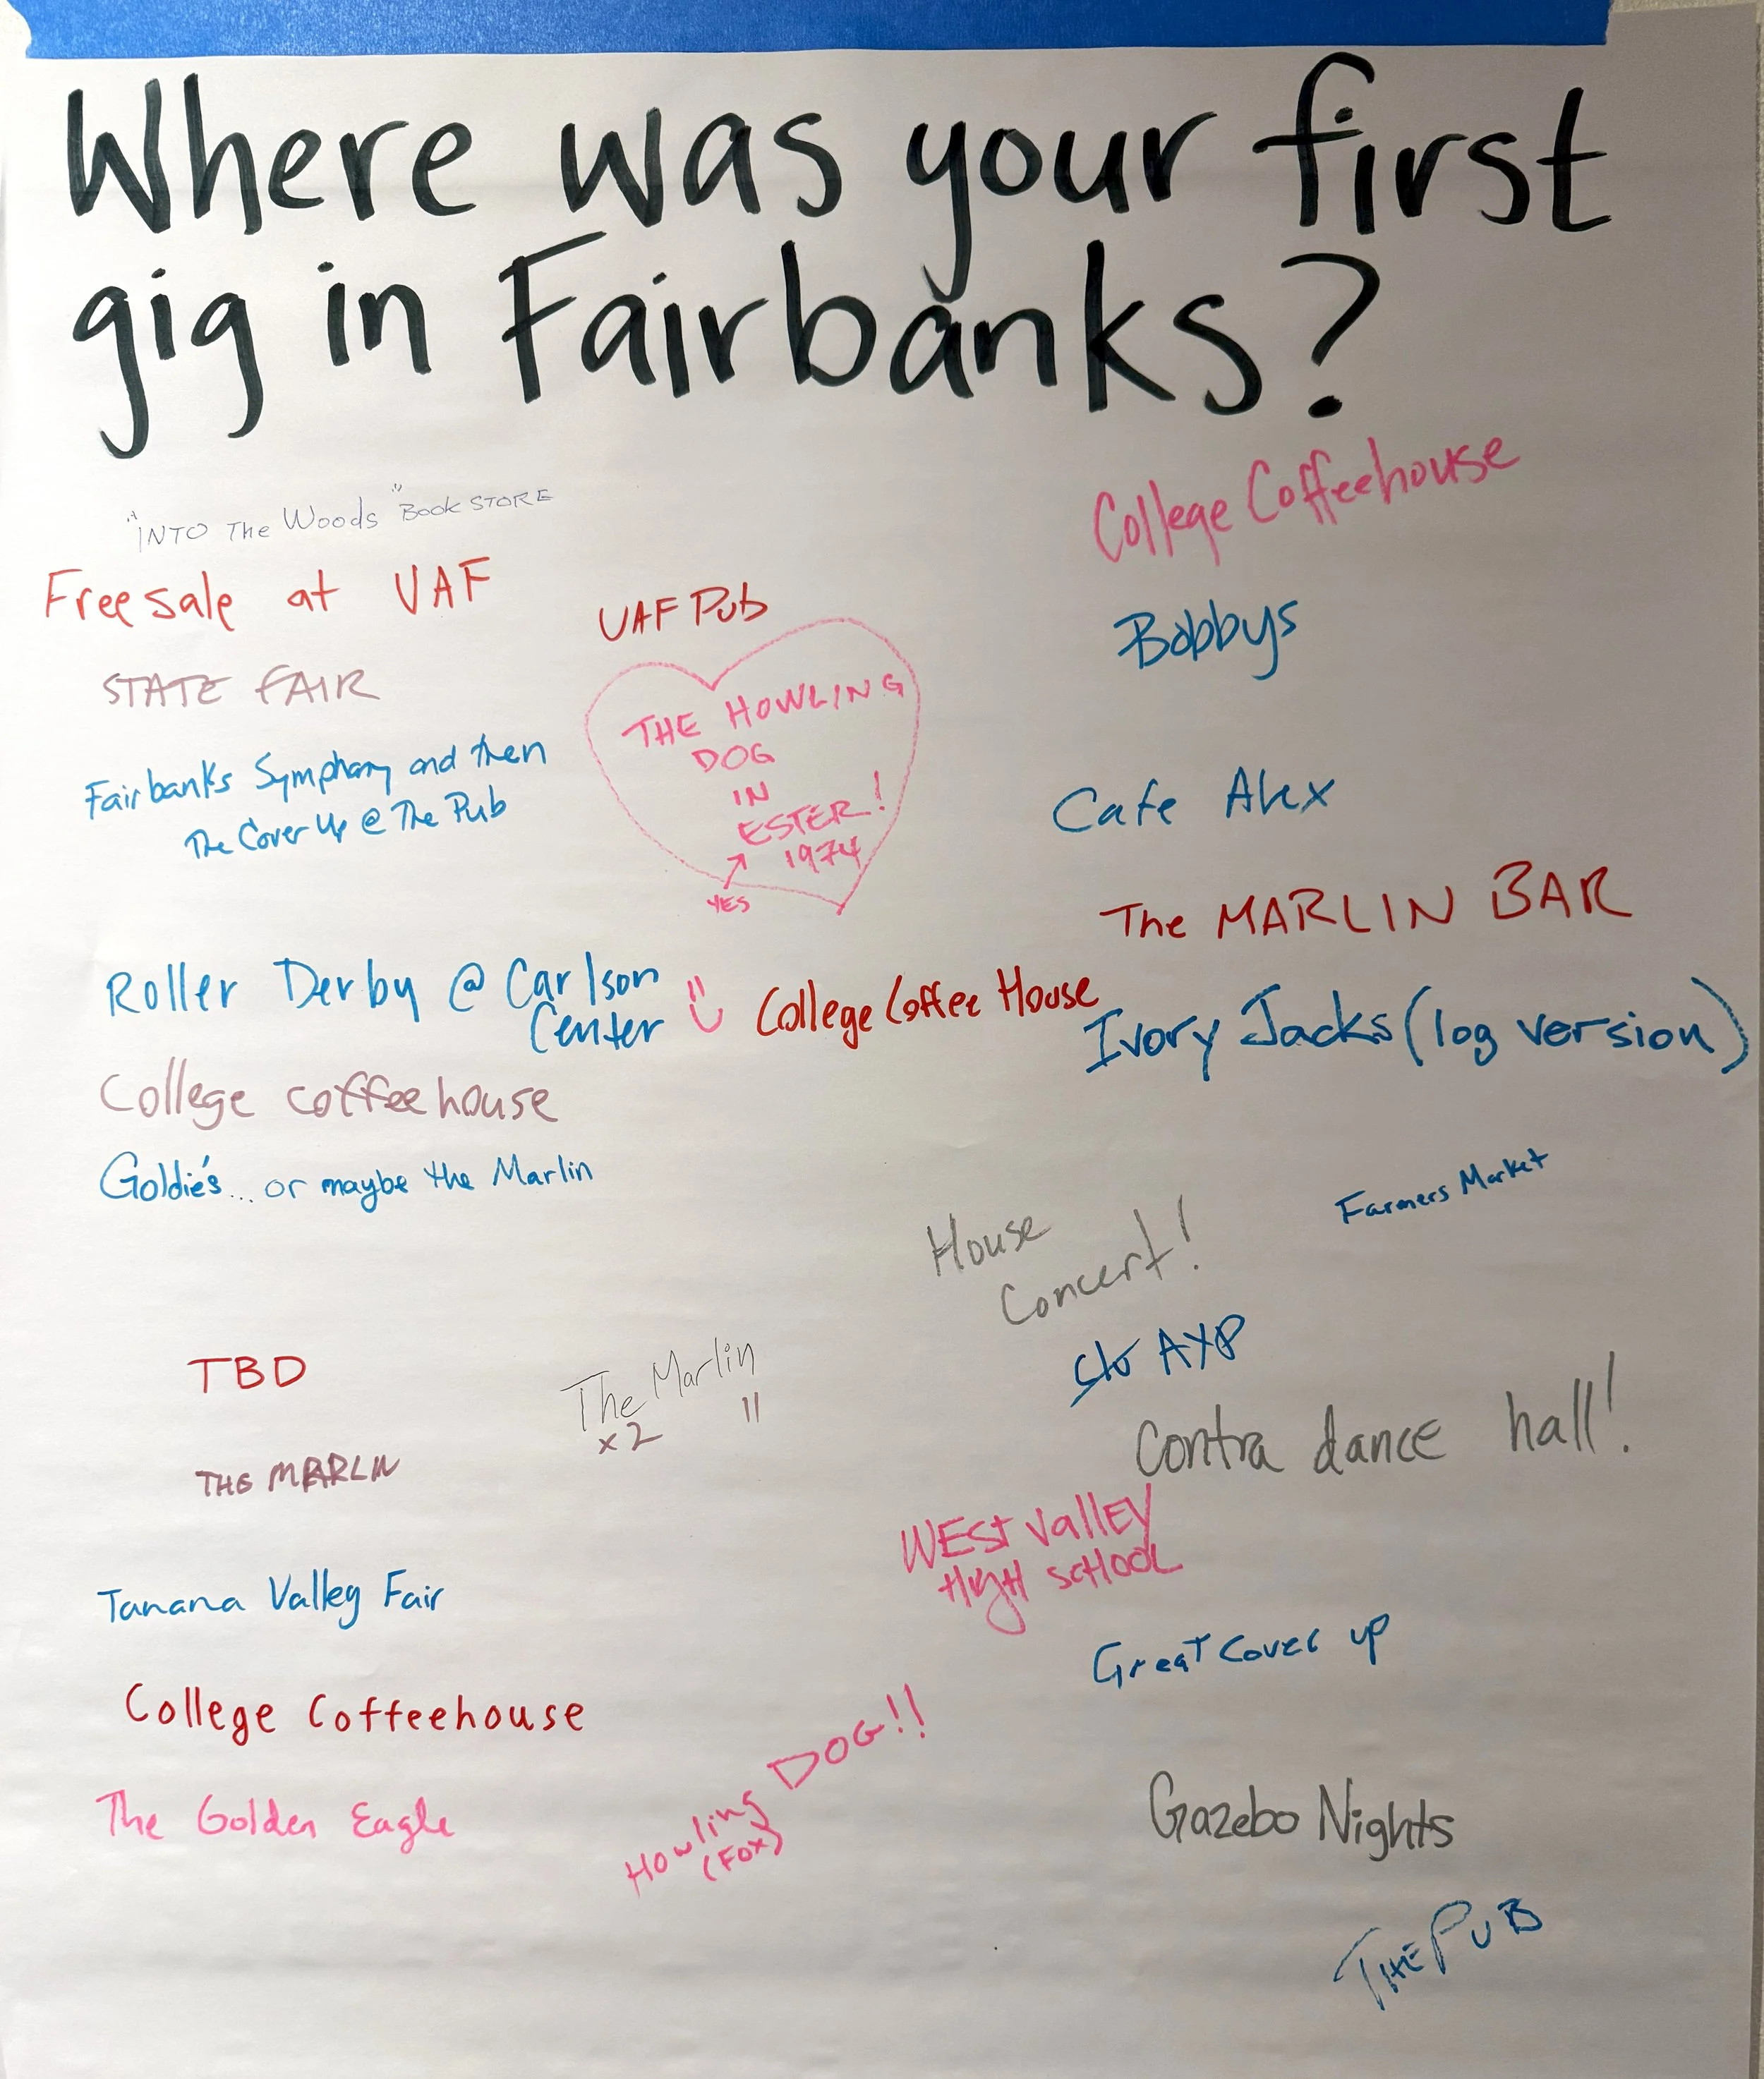 Where was your first
gig in Fairbanks?
"INTO The Woods" Book STORE
Free sale at UAF
STATE FAIR
Fairbanks Symphony and then
The Cover Up @ The Pub
Roller Derby @ Carlson
Center
College coffeehouse
Goldie's... or maybe the Marlin
TBD
THE MARLIN
Tanana Valley Fair
College Coffeehouse
The Golden Eagle
UAF Pub
THE HOWLING
DOG
IN
ESTER!
1974
YES
College Coffee House
The Marlin
x2 "
Howling DOG!!
(FOX)
College Coffeehouse
Bobbys
Cafe Alex
The MARLIN BAR
Ivory Jacks (log version)
Farmers Market
House
Concert!
Contra dance hall!
WEST Valley
HIGH SCHOOL
Great Cover up
Gazebo Nights
THE PUB